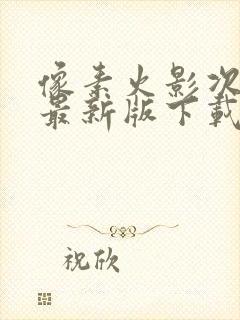 像素火影次
最新版下载
祝欣